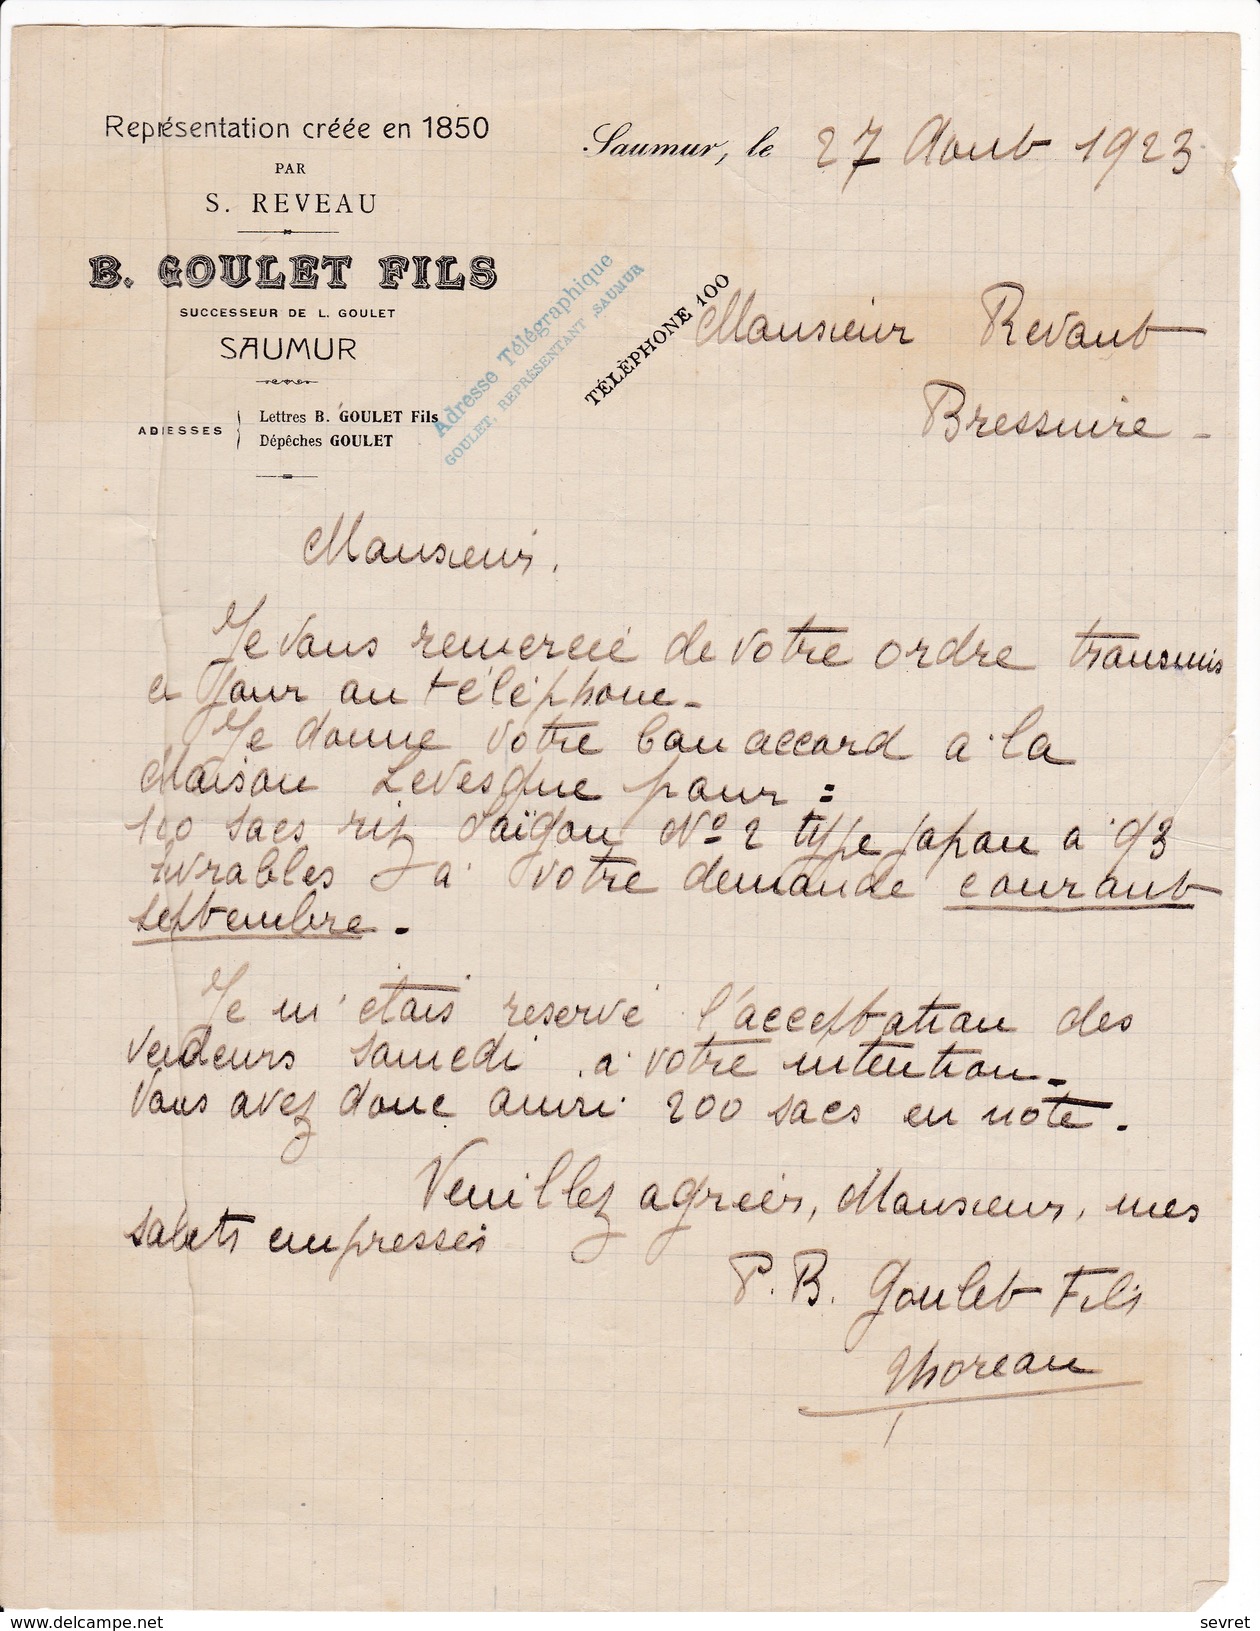 Représentation créée en 1850
PAR
S. REVEAU
B. GOULET FILS
SUCCESSEUR DE L. GOULET
SAUMUR
ADRESSES
Lettres B. GOULET Fils
Dépêches GOULET
Adresse Télégraphique
GOULET, REPRÉSENTANT, SAUMUR
TÉLÉPHONE 100
Saumur, le 27 Aout 1923
Monsieur Revaut
Bressuire -
Monsieur.
Je vous remercie de votre ordre transmis
ce jour au téléphone.
Je donne votre bon accord à la
Maison Levesque pour :
100 sacs riz Saïgon No 2 type japon à 93
livrables à votre demande courant
septembre.
Je m'étais reservé l'acceptation des
vendeurs samedi à votre intention.
Vous avez donc ainsi 200 sacs en note.
Veuillez agréer, Monsieur, mes
saluts empressés
P. B. Goulet Fils
Moreau
www.delcampe.net
sevret